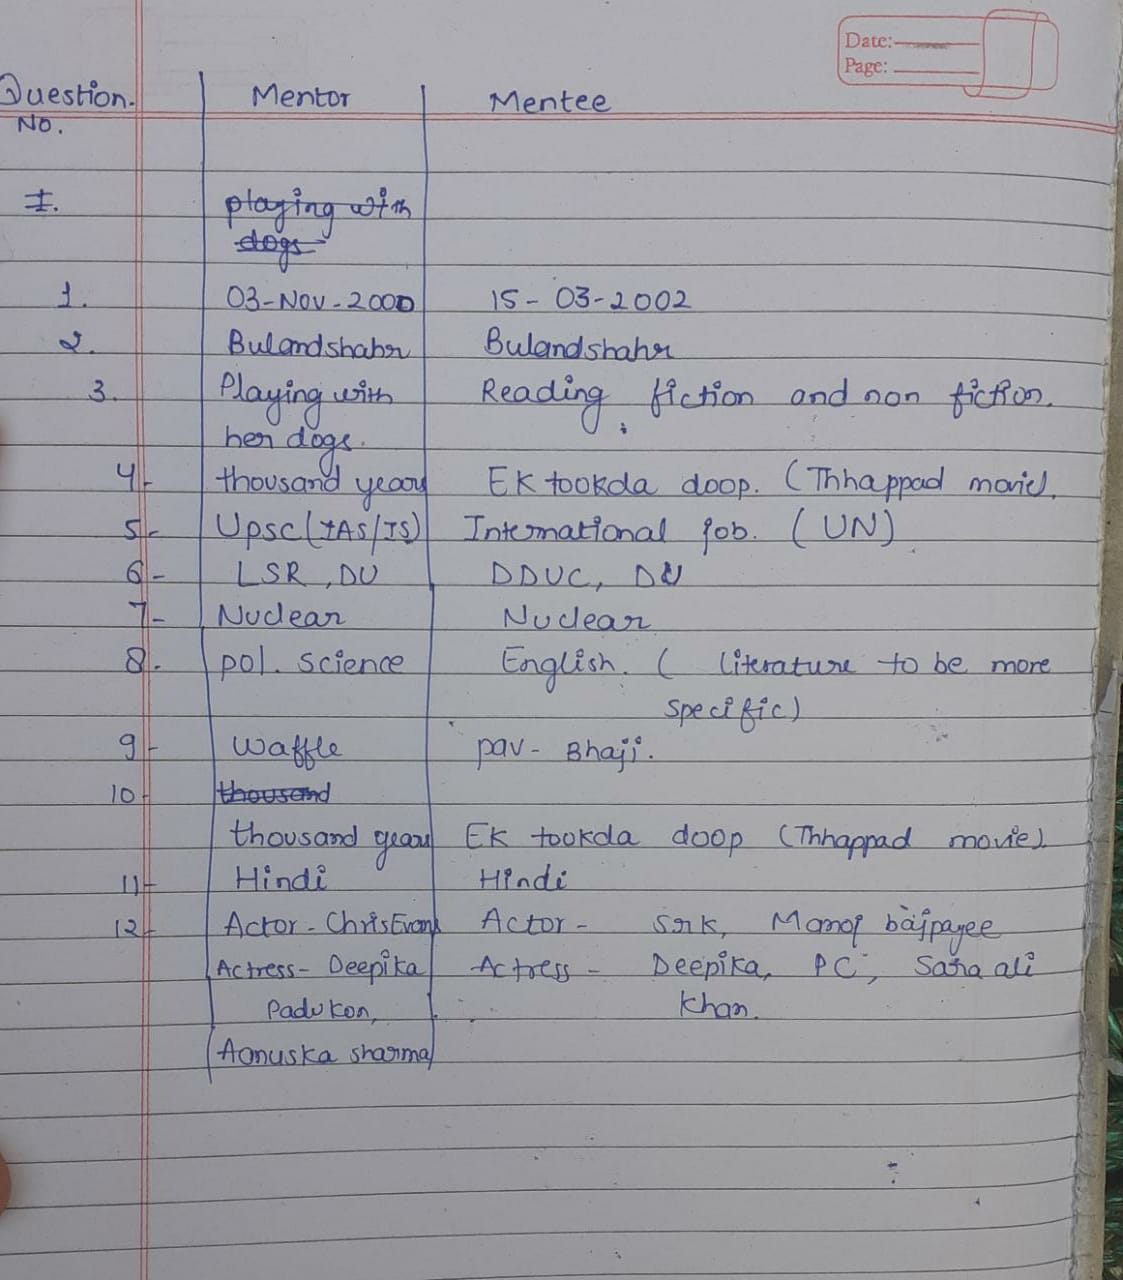 Date:
Page:
Question. Mentor Mentee
No.
I. playing with
dogs
1. 03-Nov-2000 15-03-2002
2. Bulandshahr Bulandshahr
3. Playing with Reading fiction and non fiction.
her dogs.
4- thousand years EK tookda doop. (Thhappad movie).
5- Upsc (IAS/IS) International job. (UN)
6- LSR, DU DDUC, DU
7- Nuclear Nuclear
8. pol. science English. ( literature to be more
specific)
9- Waffle pav-Bhaji.
10- thousand
thousand years EK tookda doop (Thhappad movie)
11- Hindi Hindi
12- Actor - Chris Evans Actor - Srk, Manoj bajpayee
Actress - Deepika Actress - Deepika, PC, Sara ali
Padukon, Khan.
Aanuska sharma